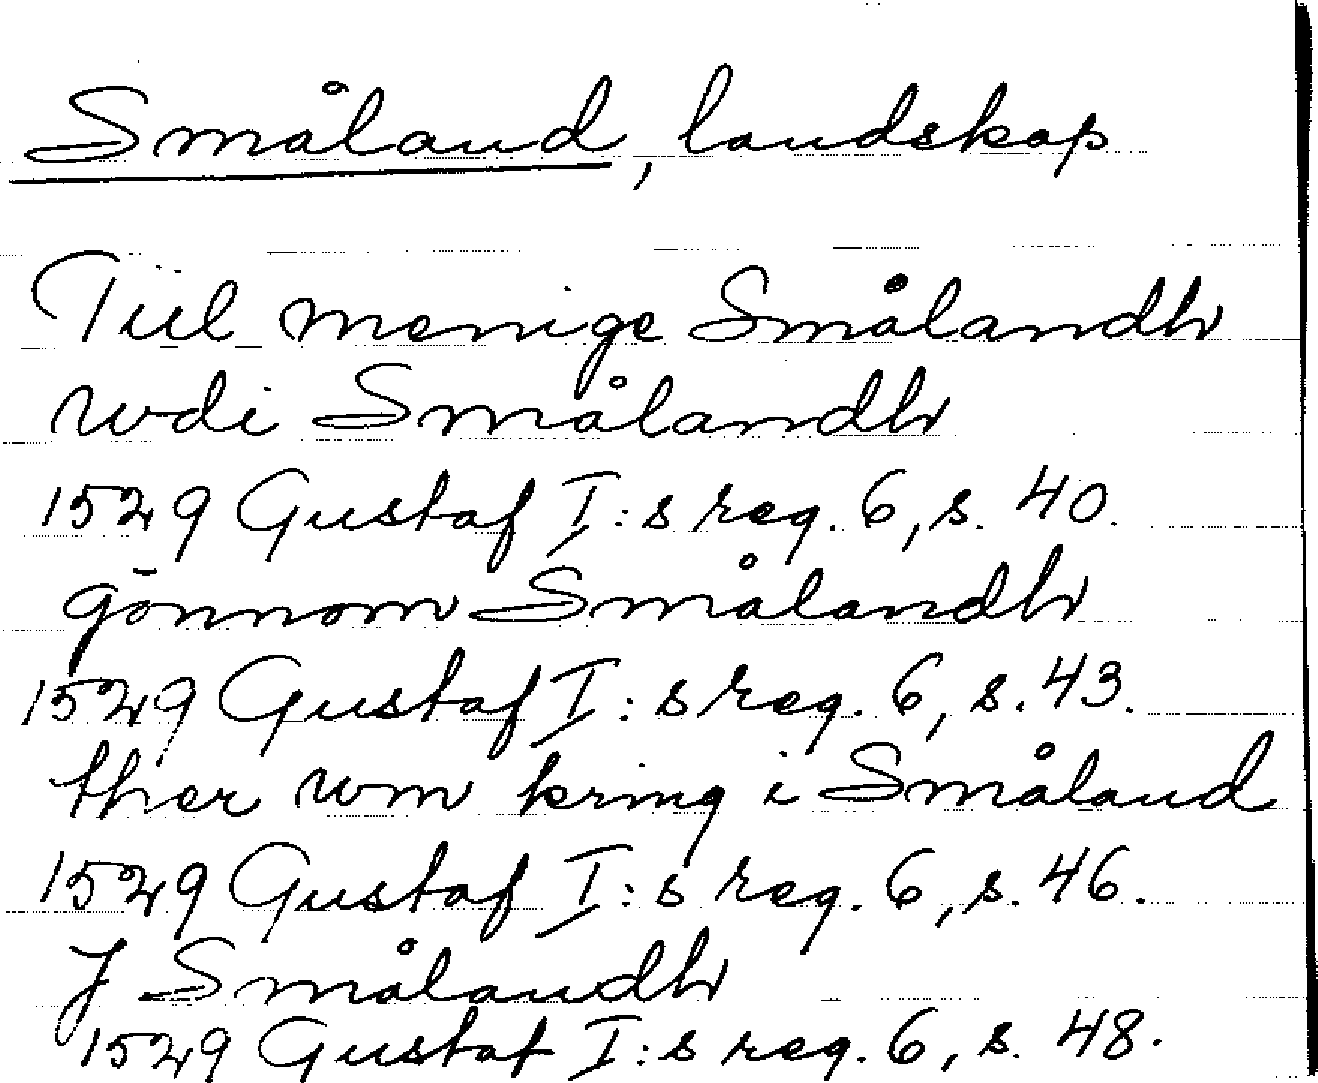 Småland, landskap
Tiil menige Smålandh
wdi Smålandh
1529 Gustaf I:s reg. 6, s. 40.
gönnom Smålandh
1529 Gustaf I:s reg. 6, s. 43.
ther wm kring i Småland
1529 Gustaf I:s reg. 6, s. 46.
J Smålandh
1529 Gustaf I:s reg. 6, s. 48.